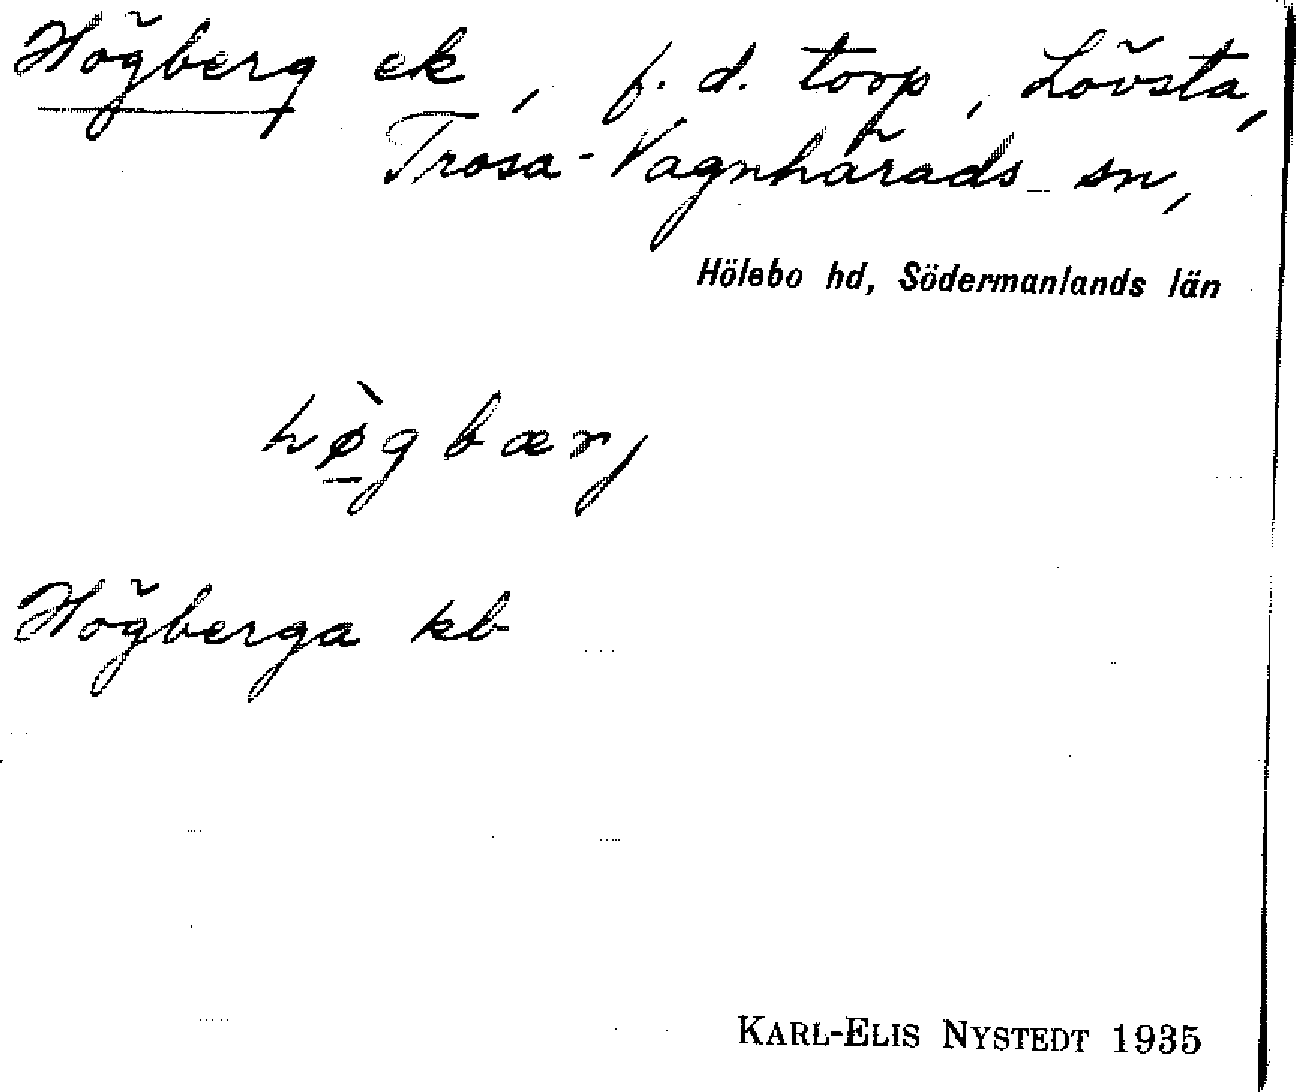 Högberg ek, f. d. torp, Lövsta,
Trosa-Vagnhärads sn,
Hölebo hd, Södermanlands län
hø̲̀gbærj
Högberga kb
KARL-ELIS NYSTEDT 1935